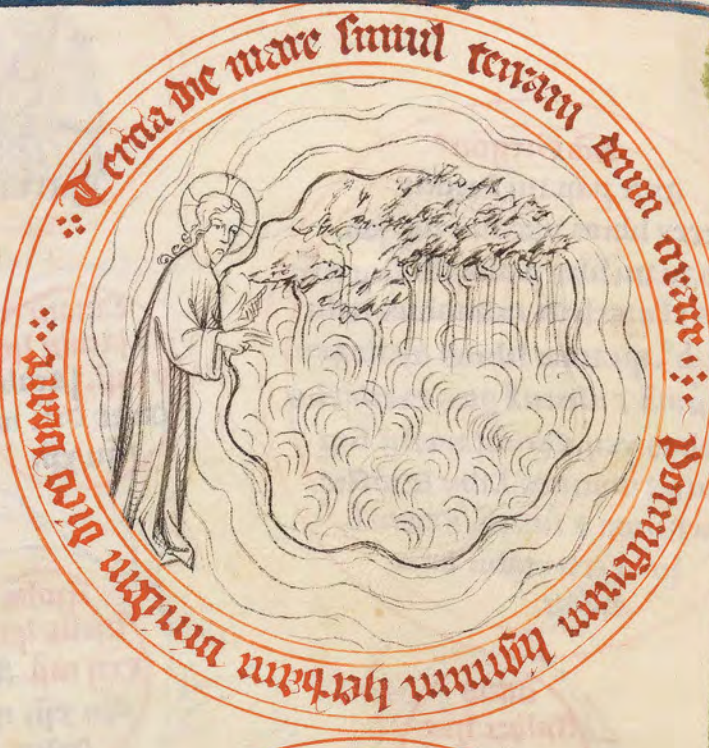 Tercia die mare simul terram
Pomiferum lignum herbam viridem dico